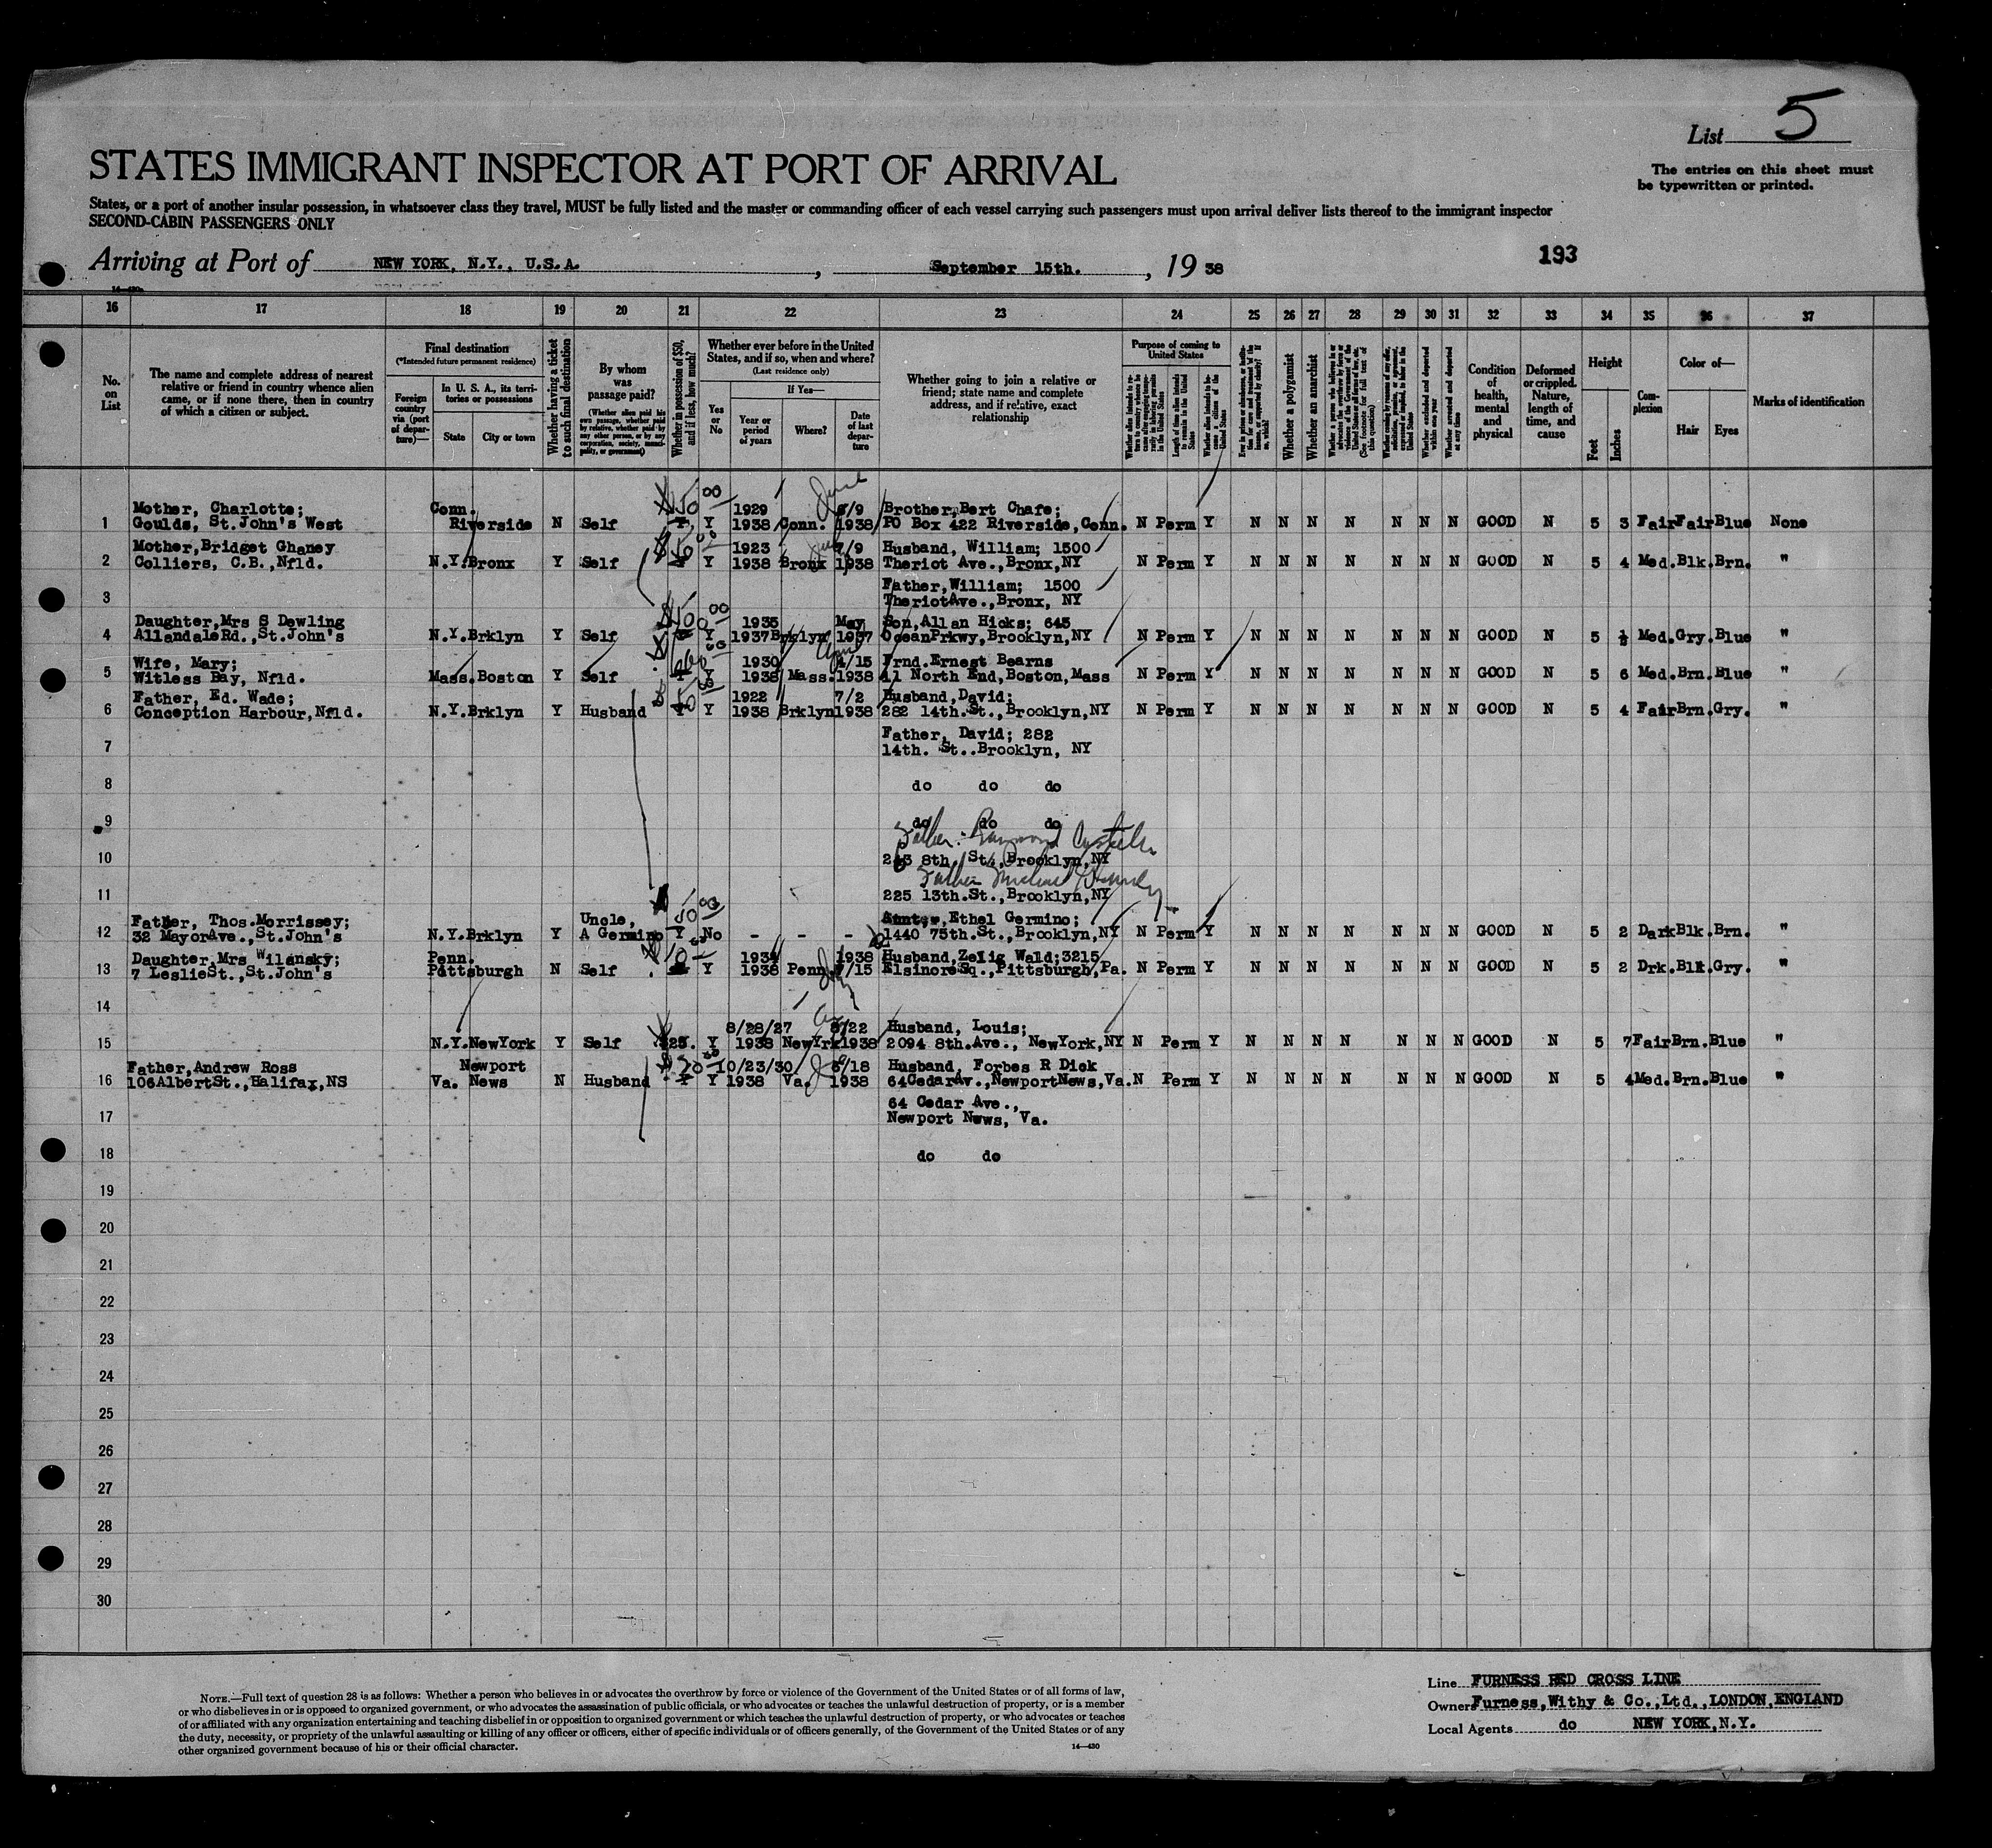 List 5
The entries on this sheet must
be typewritten or printed.
STATES IMMIGRANT INSPECTOR AT PORT OF ARRIVAL
States, or a port of another insular possession, in whatsoever class they travel, MUST be fully listed and the master or commanding officer of each vessel carrying such passengers must upon arrival deliver lists thereof to the immigrant inspector
SECOND-CABIN PASSENGERS ONLY
Arriving at Port of NEW YORK, N.Y., U.S.A. , September 15th. , 19 38
193
16 17 18 19 20 21 22 23 24 25 26 27 28 29 30 31 32 33 34 35 36 37
No. on List
The name and complete address of nearest relative or friend in country whence alien came, or if none there, then in country of which a citizen or subject.
Final destination
(*Intended future permanent residence)
Foreign country via (port of departure)—
In U. S. A., its territories or possessions
State
City or town
Whether having a ticket to such final destination
By whom was passage paid?
(Whether alien paid his own passage, whether paid by relative, whether paid by any other person, or by any corporation, society, municipality, or government)
Whether in possession of $50, and if less, how much?
Whether ever before in the United States, and if so, when and where?
(Last residence only)
Yes or No
If Yes—
Year or period of years
Where?
Date of last departure
Whether going to join a relative or friend; state name and complete address, and if relative, exact relationship
Purpose of coming to United States
Length of time alien intends to remain in the United States
Whether a polygamist
Whether an anarchist
Whether excluded and deported within one year
Whether arrested and deported at any time
Condition of health, mental and physical
Deformed or crippled. Nature, length of time, and cause
Height
Feet
Inches
Complexion
Color of—
Hair
Eyes
Marks of identification
Mother, Charlotte; Conn. 1929 8/9 Brother, Bert Chafe;
1 Goulds, St.John's West Riverside N Self Y 1938 Conn. 1938 PO Box 422 Riverside, Conn. N Perm Y N N N N N N N GOOD N 5 3 Fair Fair Blue None
Mother, Bridget Ghaney 1923 /9 Husband, William; 1500
2 Colliers, C.B., Nfld. N.Y. Bronx Y Self Y 1938 Bronx 1938 Theriot Ave., Bronx, NY N Perm Y N N N N N N N GOOD N 5 4 Med. Blk. Brn. "
Father, William; 1500
3 Theriot Ave., Bronx, NY
Daughter, Mrs S Dowling 1935 May Son, Allan Hicks; 645
4 Allandale Rd., St.John's N.Y. Brklyn Y Self Y 1937 Brklyn 1937 Ocean Prkwy, Brooklyn, NY N Perm Y N N N N N N N GOOD N 5 ½ Med. Gry. Blue "
Wife, Mary; 1930 4/15 Frnd. Ernest Bearns
5 Witless Bay, Nfld. Mass. Boston Y Self Y 1938 Mass. 1938 11 North End, Boston, Mass N Perm Y N N N N N N N GOOD N 5 6 Med. Brn. Blue "
Father, Ed. Wade; 1922 7/2 Husband, David;
6 Conception Harbour, Nfld. N.Y. Brklyn Y Husband Y 1938 Brklyn 1938 282 14th. St., Brooklyn, NY N Perm Y N N N N N N N GOOD N 5 4 Fair Brn. Gry. "
Father, David; 282
7 14th. St.. Brooklyn, NY
8 do do do
9 do do do
Father: Raymond
10 243 8th. St., Brooklyn, NY
Father Michael
11 225 13th. St., Brooklyn, NY
Father, Thos. Morrissey; Uncle, Ethel Germino;
12 32 Mayor Ave., St.John's N.Y. Brklyn Y A Germino Y No - - - 1440 75th. St., Brooklyn, NY N Perm Y N N N N N N N GOOD N 5 2 Dark Blk. Brn. "
Daughter, Mrs Wilansky; Penn. 1938 Husband, Zelig Wald; 3215
13 7 Leslie St., St.John's Pittsburgh N Self Y 1938 Penn. /15 Elsinore Sq., Pittsburgh, Pa. N Perm Y N N N N N N N GOOD N 5 2 Drk. Blk. Gry. "
14
8/28/27 8/22 Husband, Louis;
15 N.Y. New York Y Self $25. Y 1938 NewYrk 1938 2094 8th. Ave., New York, NY N Perm Y N N N N N N N GOOD N 5 7 Fair Brn. Blue "
Father, Andrew Ross Newport 10/23/30 /18 Husband, Forbes R Dick
16 106 Albert St., Halifax, NS Va. News N Husband Y 1938 Va. 1938 64 Cedar Av., Newport News, Va. N Perm Y N N N N N N N GOOD N 5 4 Med. Brn. Blue "
64 Cedar Ave.,
17 Newport News, Va.
18 do do
19
20
21
22
23
24
25
26
27
28
29
30
NOTE.—Full text of question 28 is as follows: Whether a person who believes in or advocates the overthrow by force or violence of the Government of the United States or of all forms of law,
or who disbelieves in or is opposed to organized government, or who advocates the assassination of public officials, or who advocates or teaches the unlawful destruction of property, or is a member
of or affiliated with any organization entertaining and teaching disbelief in or opposition to organized government or which teaches the unlawful destruction of property, or who advocates or teaches
the duty, necessity, or propriety of the unlawful assaulting or killing of any officer or officers, either of specific individuals or of officers generally, of the Government of the United States or of any
other organized government because of his or their official character.
14—430
Line FURNESS RED CROSS LINE
Owners Furness, Withy & Co., Ltd., LONDON, ENGLAND
Local Agents do NEW YORK, N.Y.